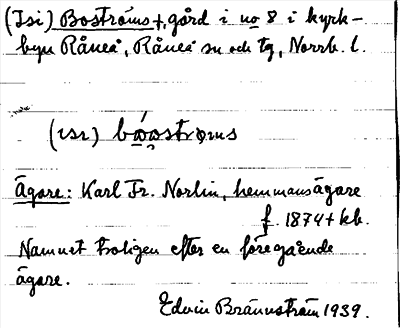 (Isi) Boströms +, gård i no 8 i kyrk-
byn Råneå, Råneå sn och tg, Norrb. l.
(ısı)
Ägare: Karl Fr. Norlin, hemmansägare
f. 1874 + kb.
Namnet troligen efter en föregående
ägare.
Edvin Brännström 1939.